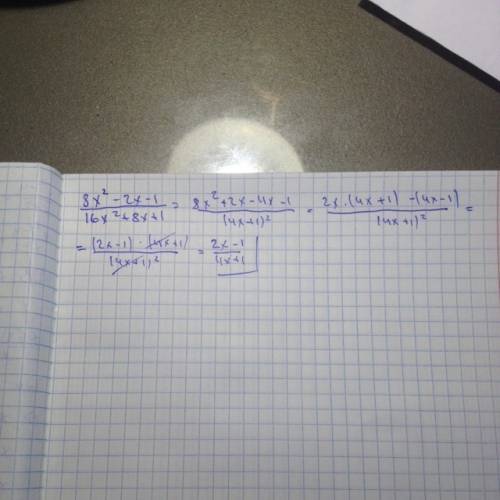 (8x² - 2x - 1)/(16x² + 8x + 1) = (8x² + 2x - 4x - 1)/(4x+1)² = (2x · (4x + 1) - (4x - 1))/(4x+1)² =
= ((2x - 1) · (4x+1))/(4x+1)² = (2x - 1)/(4x+1)